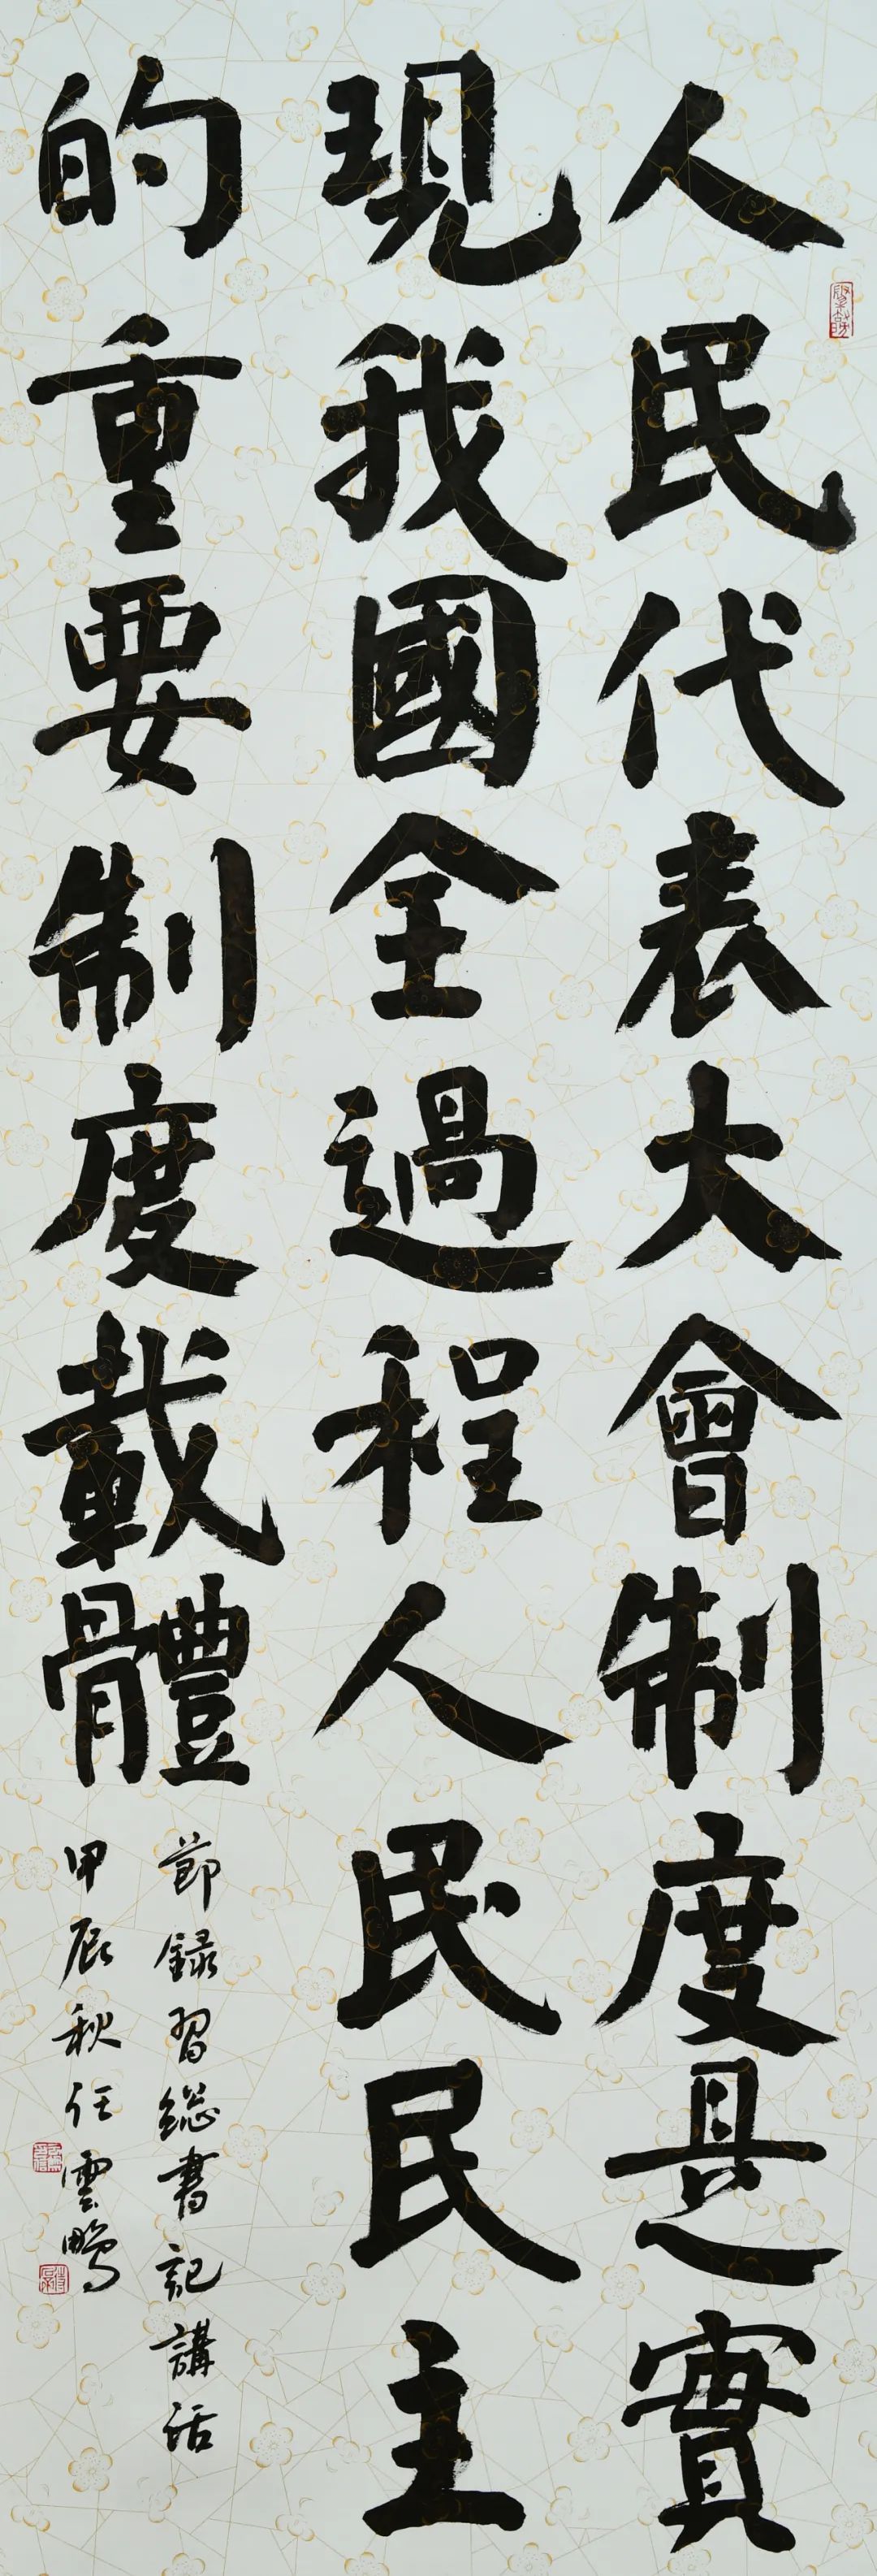 人民代表大會制度是實
現我國全過程人民民主
的重要制度載體
節錄習總書記講話
甲辰秋任雲鵬